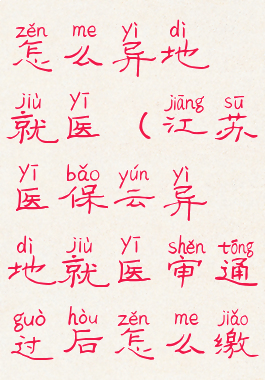 zěn me yì dì
怎么异地
jiù yī jiāng sū
就医（江苏
yī bǎo yún yì
医保云异
dì jiù yī shěn tōng
地就医审通
guò hòu zěn me jiǎo
过后怎么缴